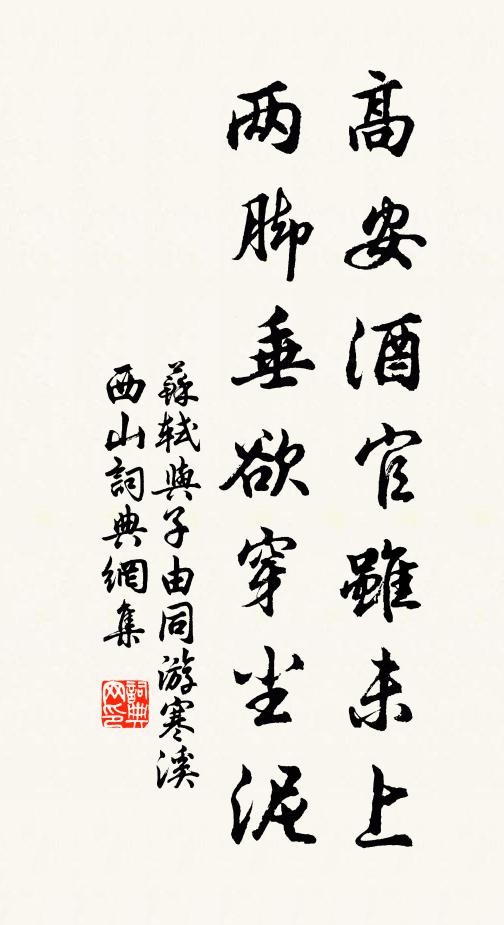 高安酒官雖未上
两脚垂欲穿尘泥
蘇軾與子由同游寒溪
西山詞典網集
詞典网印